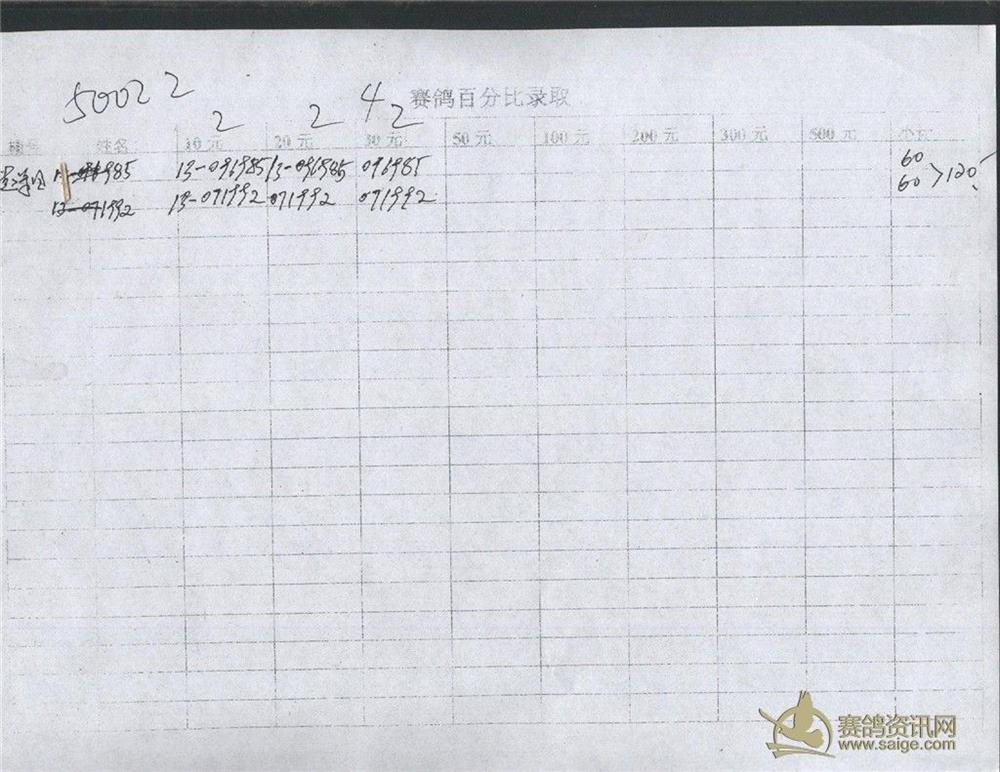 50022
赛鸽百分比录取
2 2 4 2
棚号 姓名 10元 20元 30元 50元 100元 200元 300元 500元 小计
985 13-096985 13-096985 096985 60
13-071992 13-071992 071992 071992 60 >120
赛鸽资讯网
www.saige.com